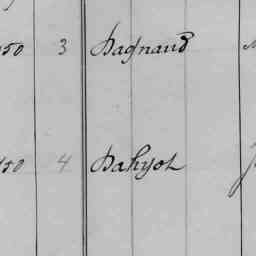 150 3 Dagnaud
150 4 Dahyot